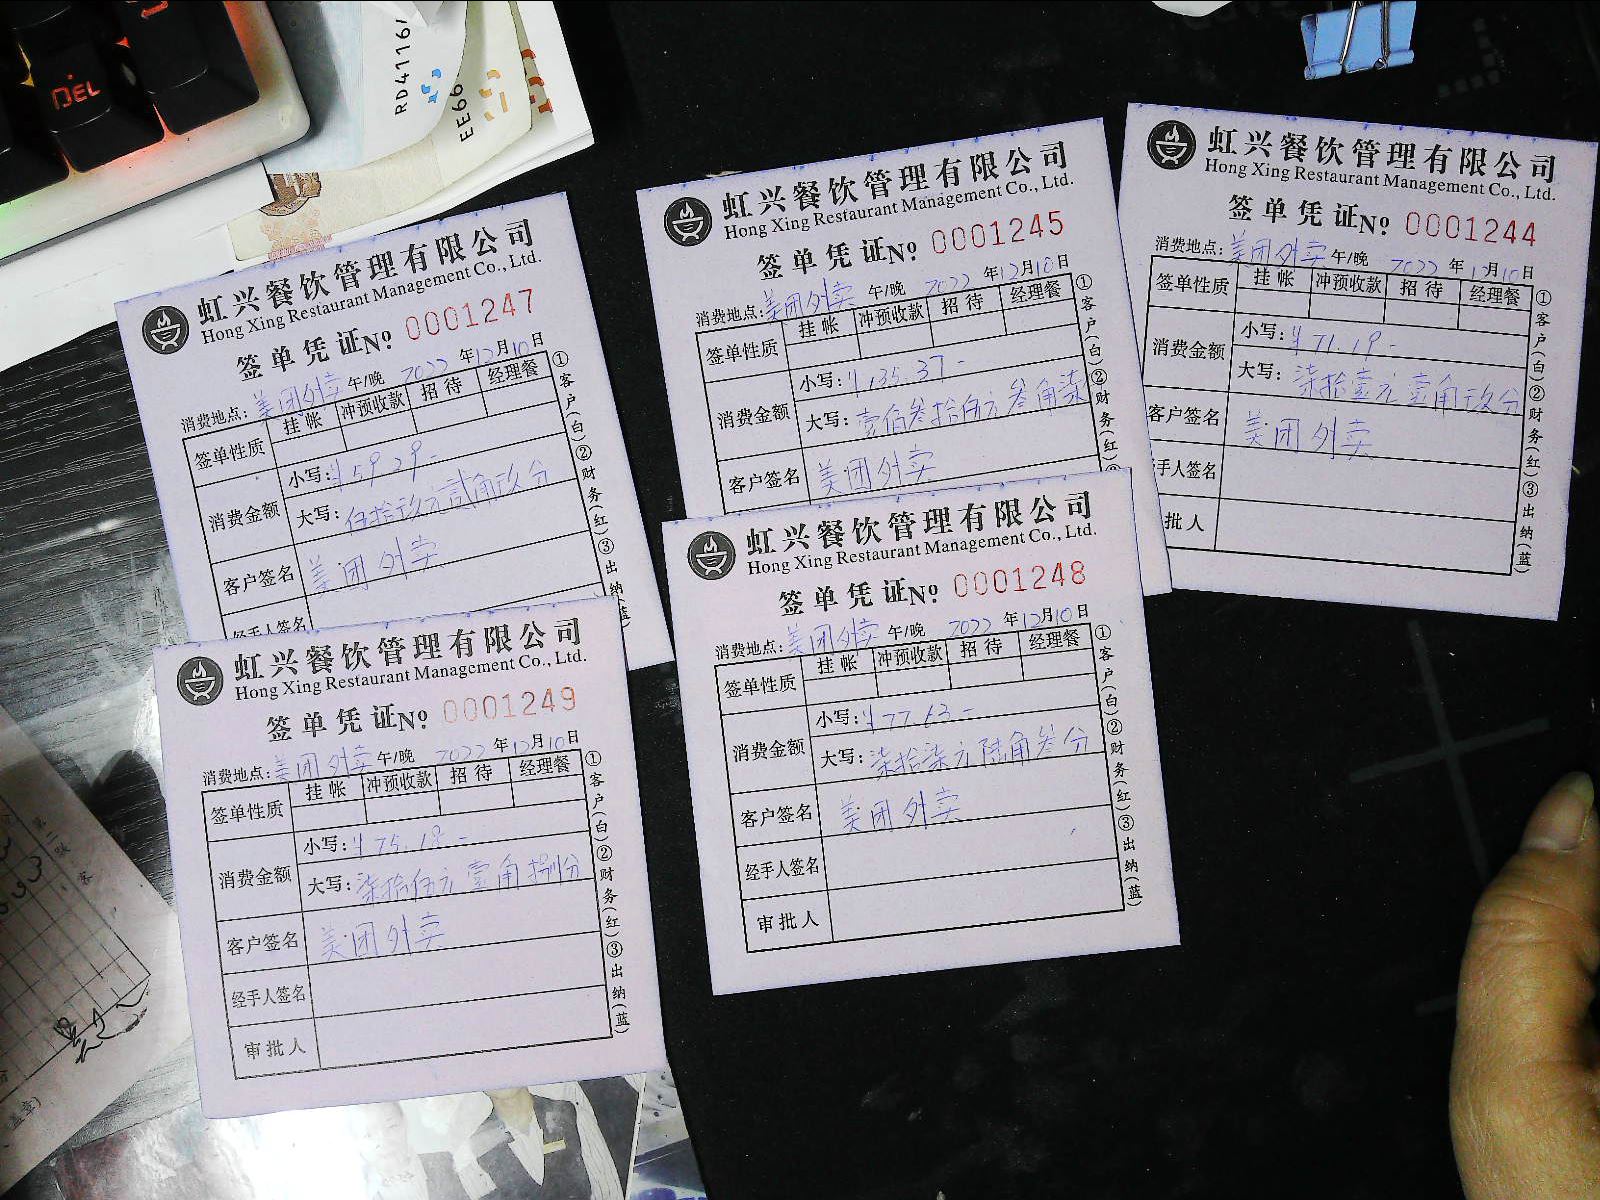 DEL
RD4116
EE66
虹兴餐饮管理有限公司
Hong Xing Restaurant Management Co., Ltd.
签单凭证№ 0001247
消费地点:美团外卖 午/晚 2022年12月10日
签单性质 挂帐 冲预收款 招待 经理餐
消费金额 小写:¥59.29-
大写:伍拾玖元贰角玖分
客户签名 美团外卖
经手人签名
①客户(白)②财务(红)③出纳(蓝)
虹兴餐饮管理有限公司
Hong Xing Restaurant Management Co., Ltd.
签单凭证№ 0001245
消费地点:美团外卖 午/晚 2022年12月10日
签单性质 挂帐 冲预收款 招待 经理餐
消费金额 小写:¥135.37-
大写:壹佰叁拾伍元叁角柒
客户签名 美团外卖
①客户(白)②财务(红)
虹兴餐饮管理有限公司
Hong Xing Restaurant Management Co., Ltd.
签单凭证№ 0001244
消费地点:美团外卖 午/晚 2022年12月10日
签单性质 挂帐 冲预收款 招待 经理餐
消费金额 小写:¥71.19-
大写:柒拾壹元壹角玖分
客户签名 美团外卖
手人签名
批人
①客户(白)②财务(红)③出纳(蓝)
虹兴餐饮管理有限公司
Hong Xing Restaurant Management Co., Ltd.
签单凭证№ 0001249
消费地点:美团外卖 午/晚 2022年12月10日
签单性质 挂帐 冲预收款 招待 经理餐
消费金额 小写:¥75.18-
大写:柒拾伍元壹角捌分
客户签名 美团外卖
经手人签名
审批人
①客户(白)②财务(红)③出纳(蓝)
虹兴餐饮管理有限公司
Hong Xing Restaurant Management Co., Ltd.
签单凭证№ 0001248
消费地点:美团外卖 午/晚 2022年12月10日
签单性质 挂帐 冲预收款 招待 经理餐
消费金额 小写:¥77.63-
大写:柒拾柒元陆角叁分
客户签名 美团外卖
经手人签名
审批人
①客户(白)②财务(红)③出纳(蓝)
第二联
客
盖章)